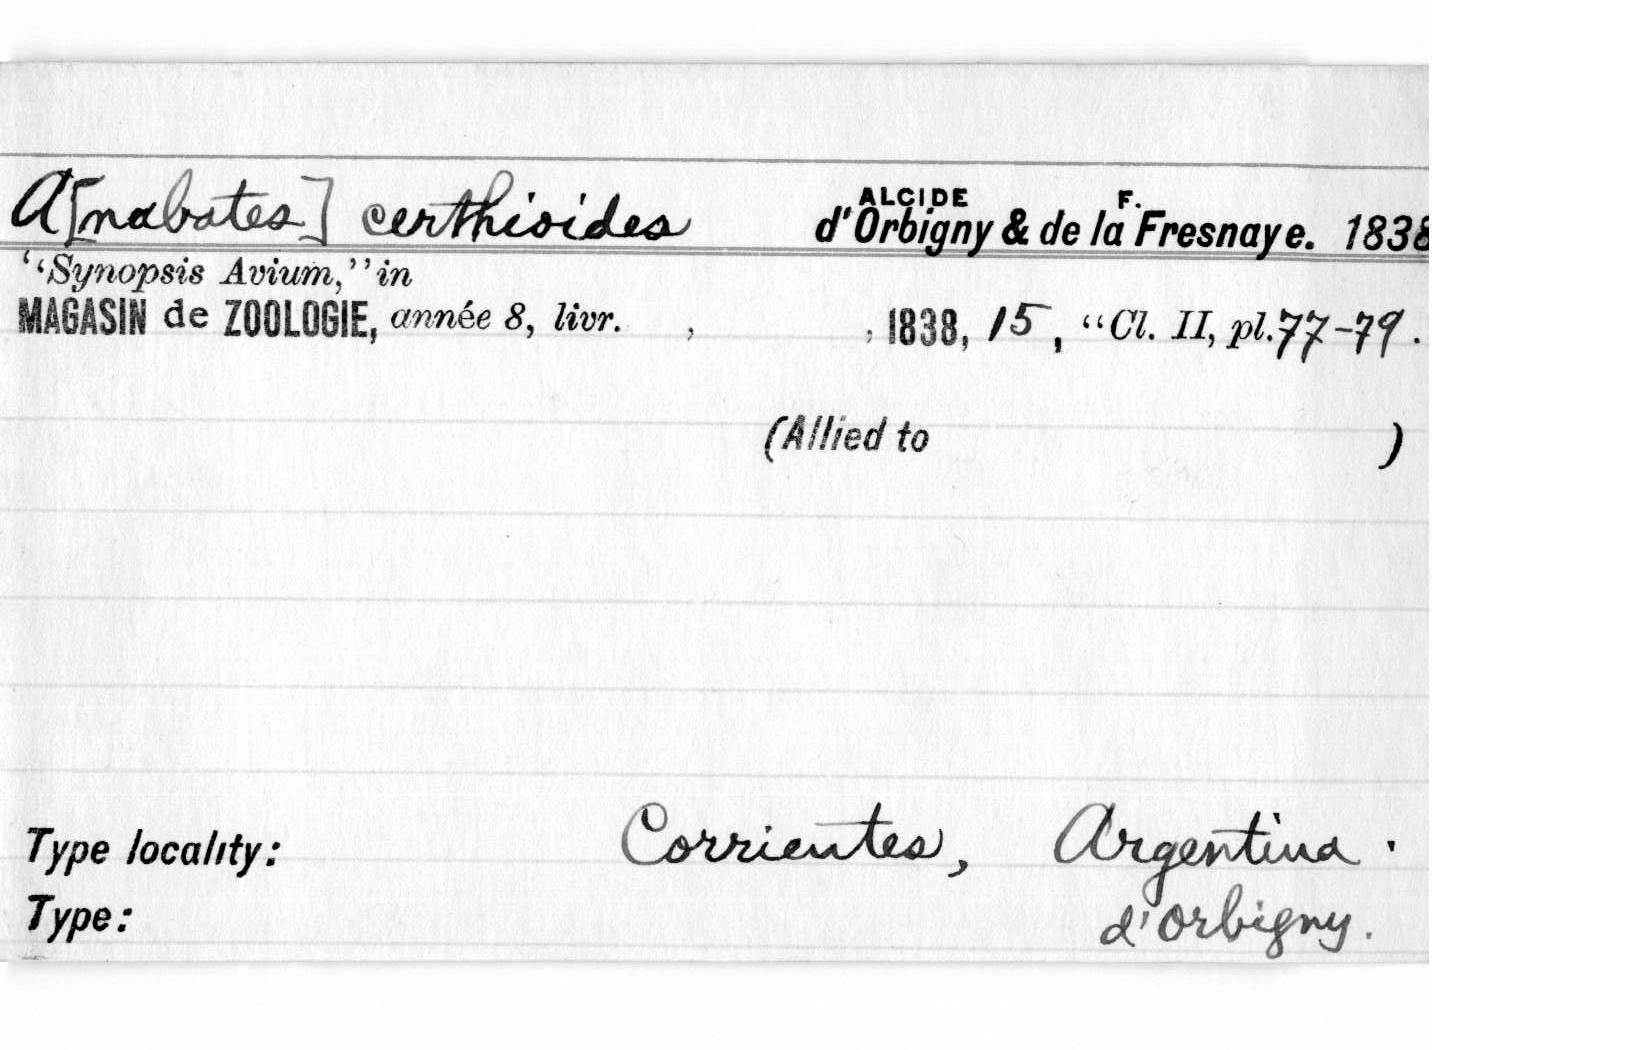 A[nabates] certhioides ALCIDE d'Orbigny & de la F. Fresnaye. 1838
"Synopsis Avium," in
MAGASIN de ZOOLOGIE, année 8, livr. , , 1838, 15, "Cl. II, pl. 77-79.
(Allied to )
Type locality: Corrientes, Argentina.
Type: d'Orbigny.